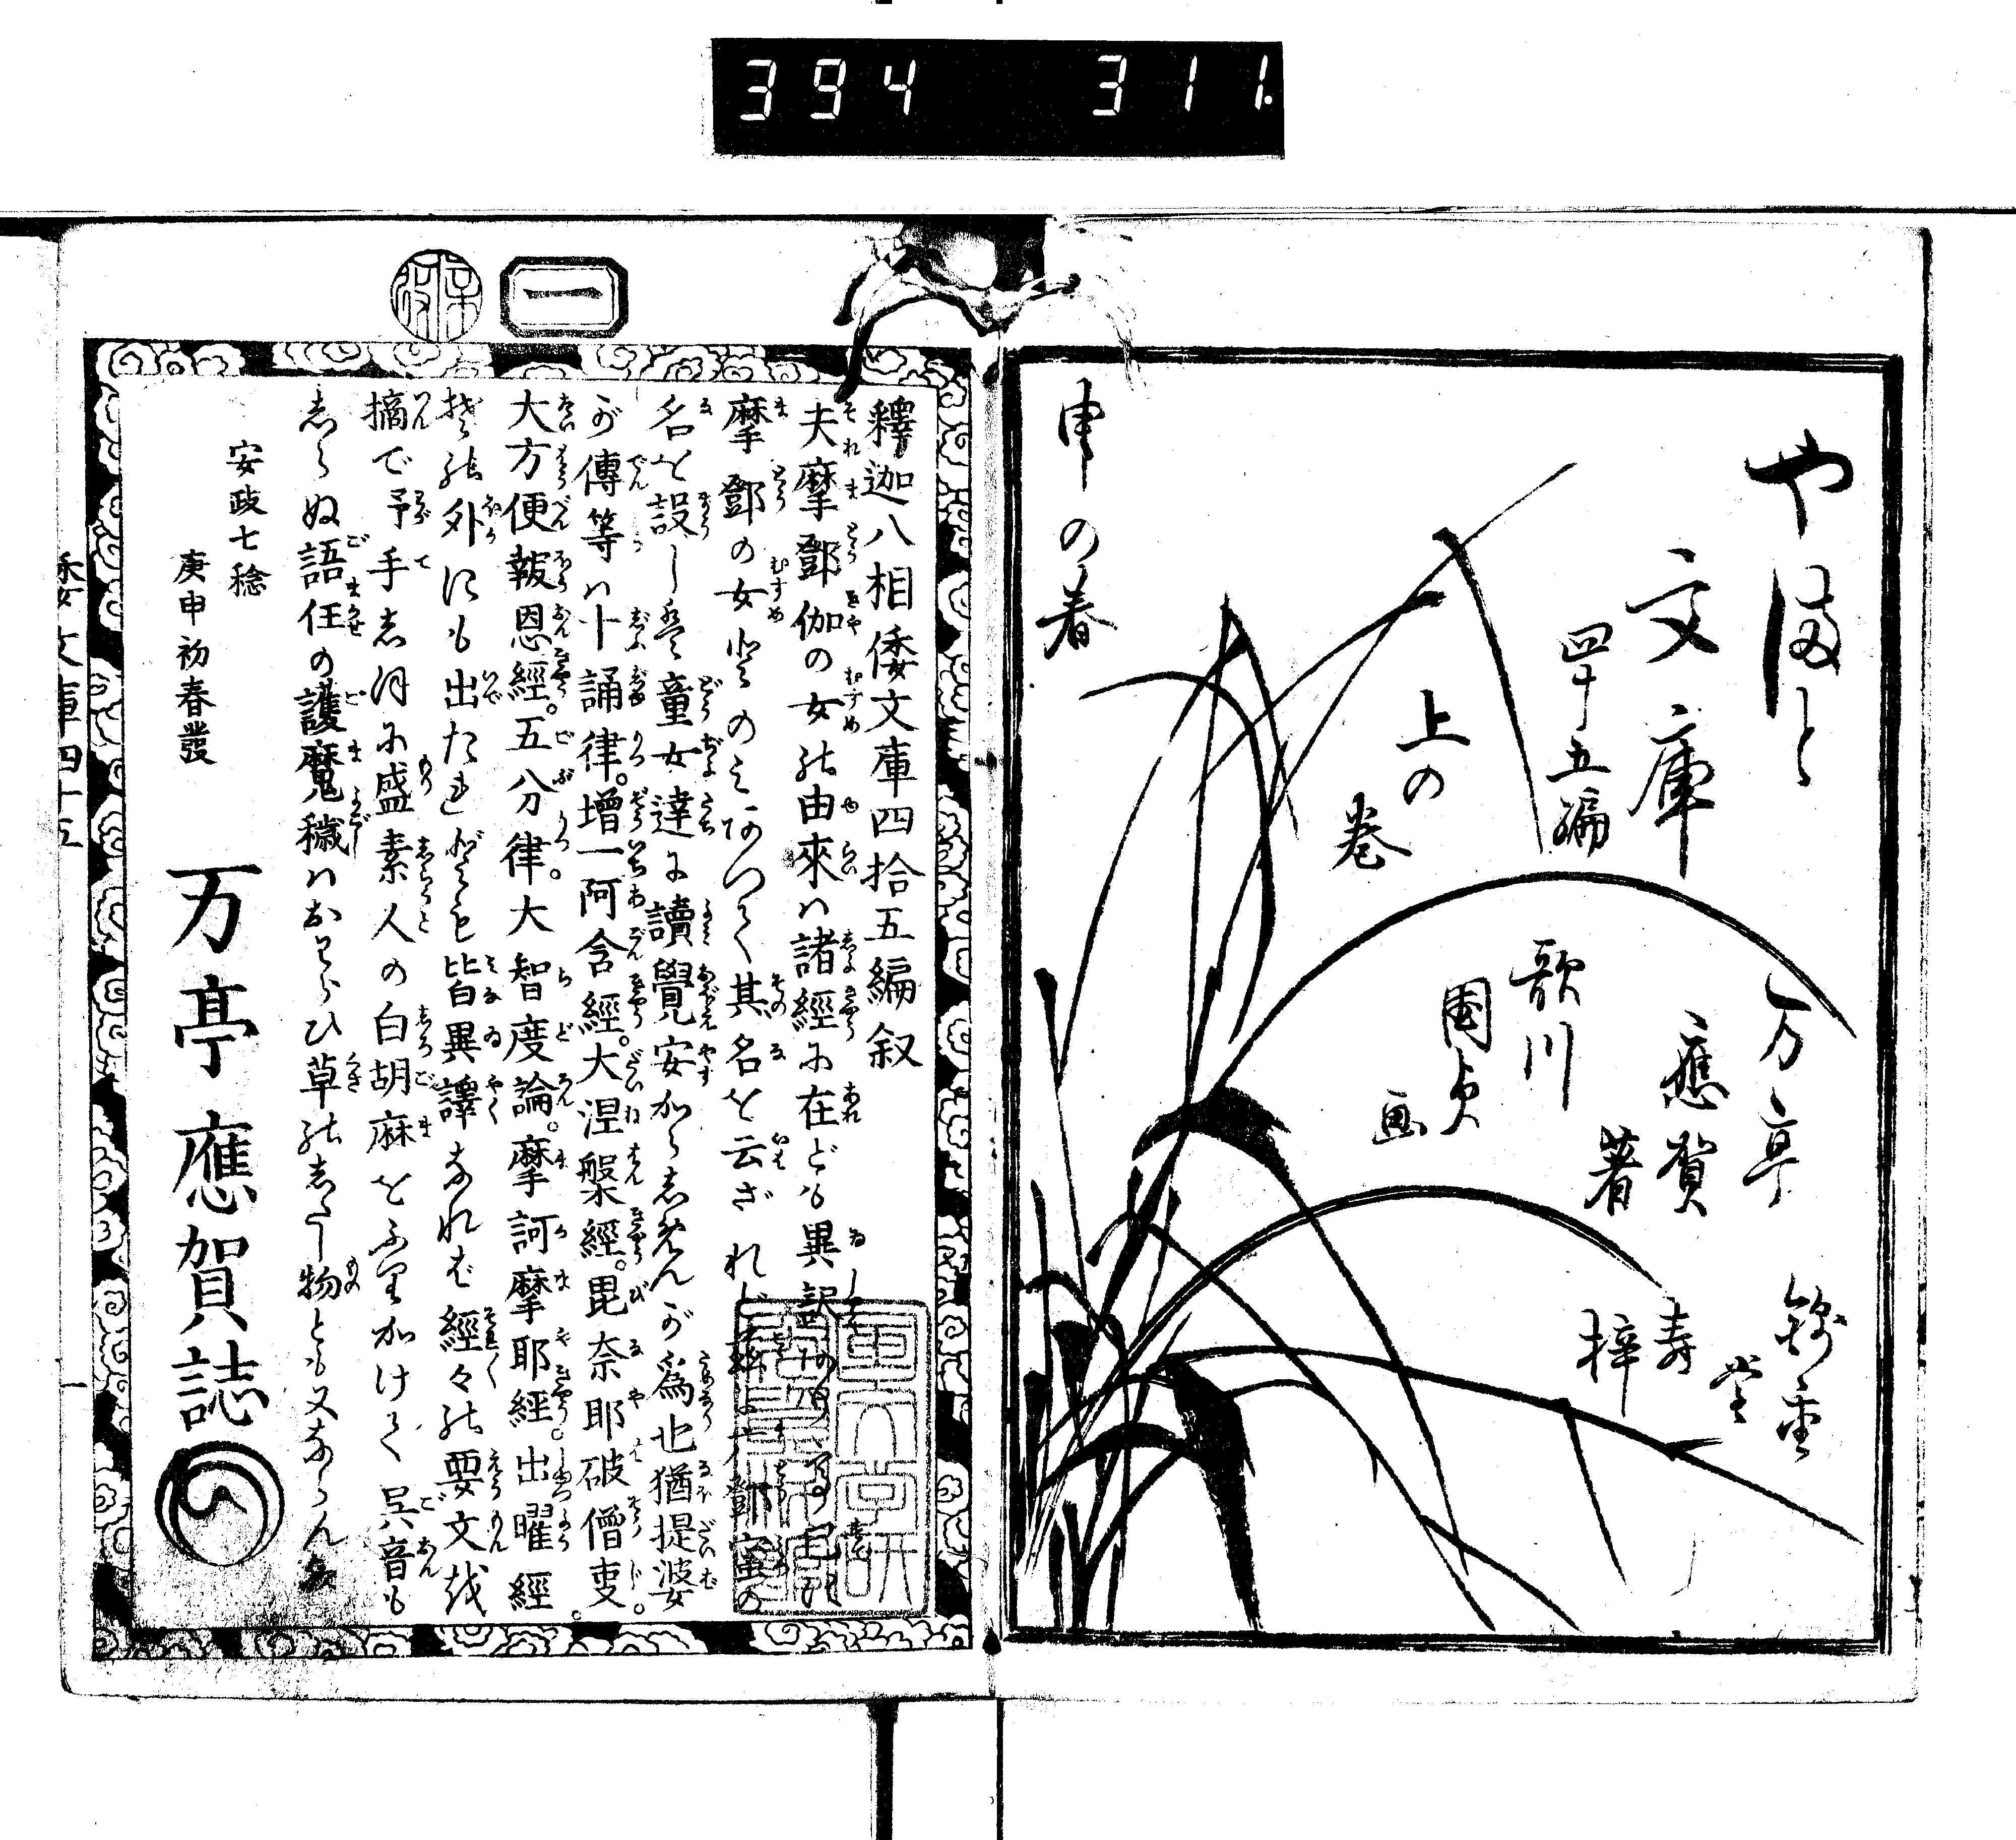 394 311
やまと
文庫
四十五編
上の
巻
万亭
應賀
著
歌川
國貞
画
錦重
堂
寿
梓
申の春
一
釋迦八相倭文庫四拾五編叙
夫摩鄧伽の女の由來ハ諸經に在ども異訳
摩鄧の女とのみありて其名を云ざれば
名を設し是童女達に讀覺安からしめんが為也猶提婆
が傳等ハ十誦律。增一阿含經。大涅槃經。毘奈耶破僧叓。
大方便報恩經。五分律。大智度論。摩訶摩耶經。出曜經。
其の外にも出たれども皆異譯なれば經々の要文を
摘で予手しほに盛素人の白胡麻をふりかけて呉音も
しらぬ語任の護魔穢ハおわらひ草のした物ともなならん
安政七稔
庚申初春發
万亭應賀誌
倭文庫四十五
一